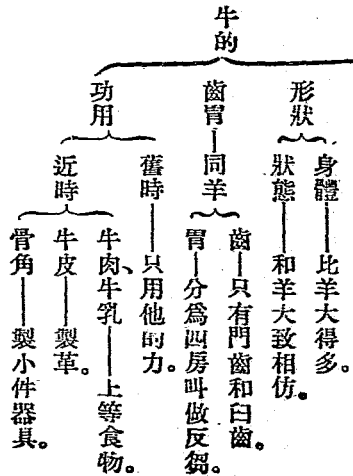 牛的
形狀
身體——比羊大得多。
狀態——和羊大致相仿。
齒胃—同羊
齒—只有門齒和臼齒。
胃—分爲四房叫做反芻。
功用
舊時——只用他的力。
近時
牛肉、牛乳——上等食物。
牛皮——製革。
骨角——製小件器具。